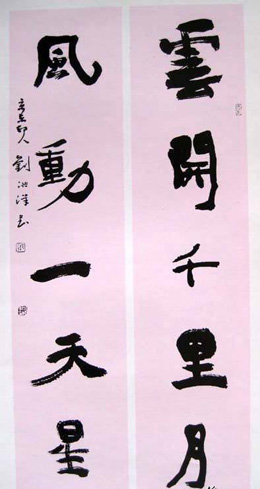 雲開千里月
風動一天星
劉洪洋書